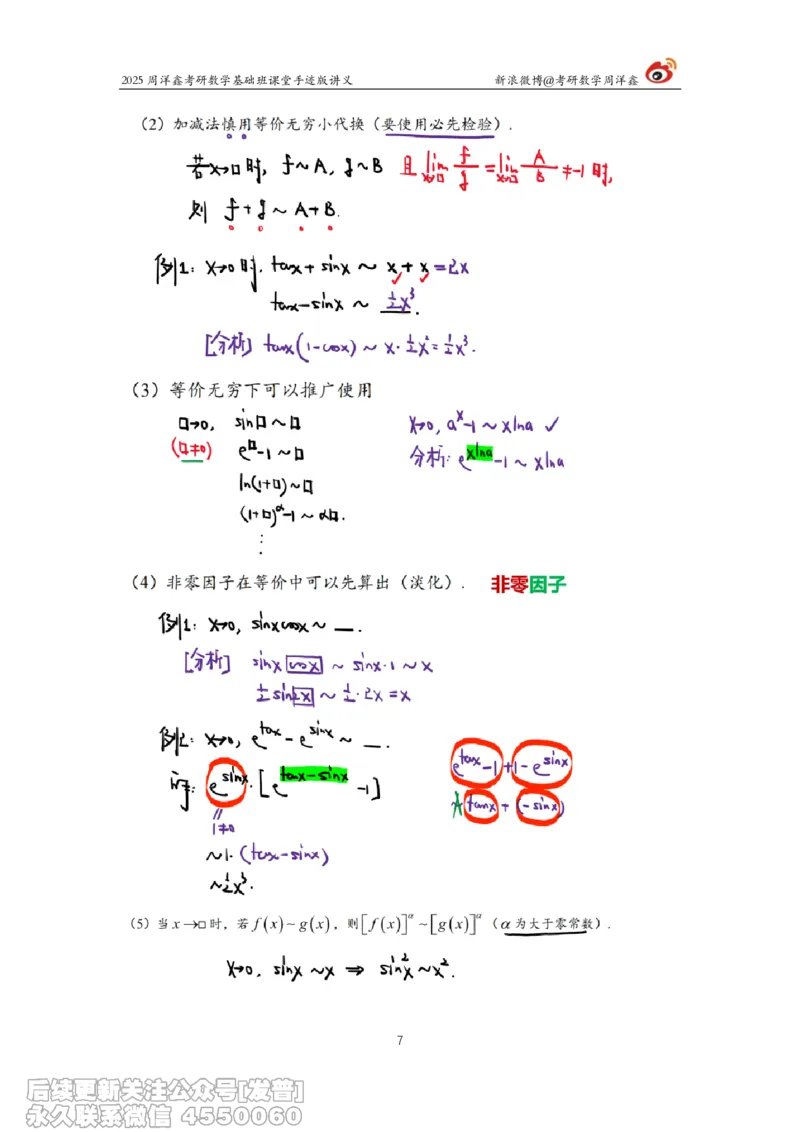 2025 周洋鑫考研数学基础班课堂手迹版讲义 新浪微博@考研数学周洋鑫
（2）加减法慎用等价无穷小代换（要使用必先检验）.
若x→□时, f~A, g~B 且 lim_{x→□} f/g = lim_{x→□} A/B ≠ -1 时,
则 f+g ~ A+B.
例1: x→0时, tanx+sinx ~ x+x =2x
tanx-sinx ~ ½x³.
[分析] tanx(1-cosx) ~ x·½x²=½x³.
（3）等价无穷下可以推广使用
□→0, sin□~□
(□≠0) e^□-1~□
ln(1+□)~□
(1+□)^α-1~α□.
⋮
x→0, a^x-1~xlna ✓
分析: e^{xlna}-1~xlna
（4）非零因子在等价中可以先算出（淡化）. 非零因子
例1: x→0, sinxcosx~__.
[分析] sinx cosx ~ sinx·1~x
½sin2x ~ ½·2x=x
例2: x→0, e^{tanx}-e^{sinx}~__.
e^{sinx}·[e^{tanx-sinx}-1]
‖
1≠0
~1·(tanx-sinx)
~½x³.
e^{tanx}-1+1-e^{sinx}
tanx+(-sinx)
（5）当 x→□ 时，若 f(x)~g(x)，则[f(x)]^α~[g(x)]^α（α为大于零常数）.
x→0, sinx~x ⇒ sin²x~x².
7
后续更新关注公众号[发普]
永久联系微信 4550060